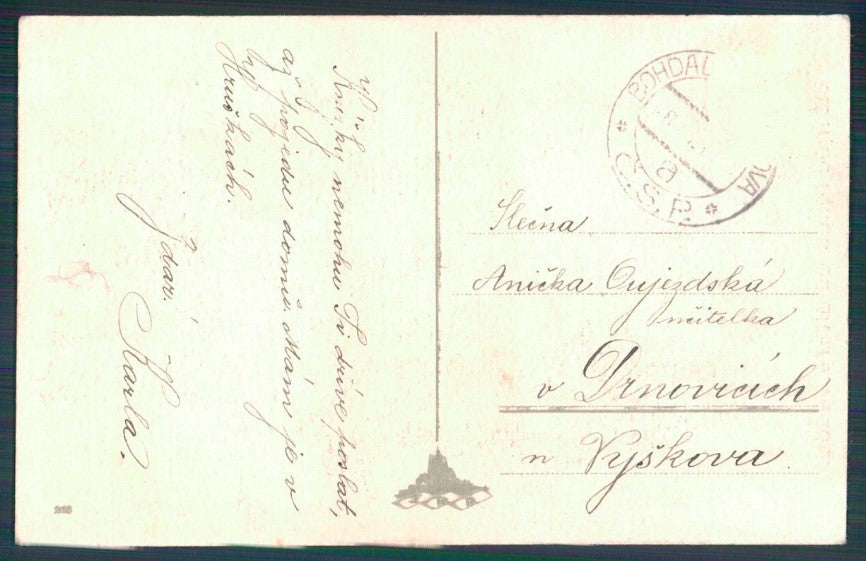 Knížky nemohu Ti dříve poslat,
až pojedu domů. Mám je v
Hruškách.
Zdar!
Karla.
BOHDAL OVA
a
Č.S.P.
Slečna
Anička Oujezdská
učitelka
v Drnovicích
u Vyškova.